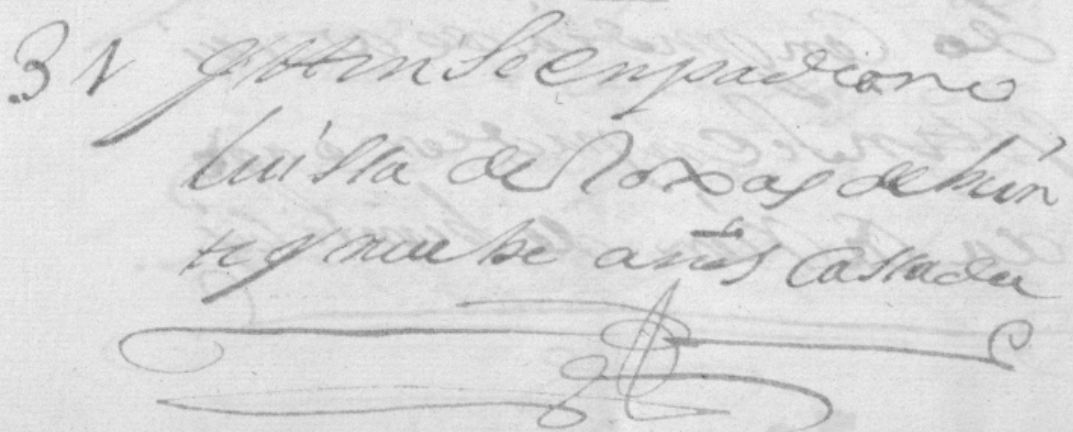 31 y tten Se enpadrono
luissa de Roxas de bein
te y nuebe años Cassada